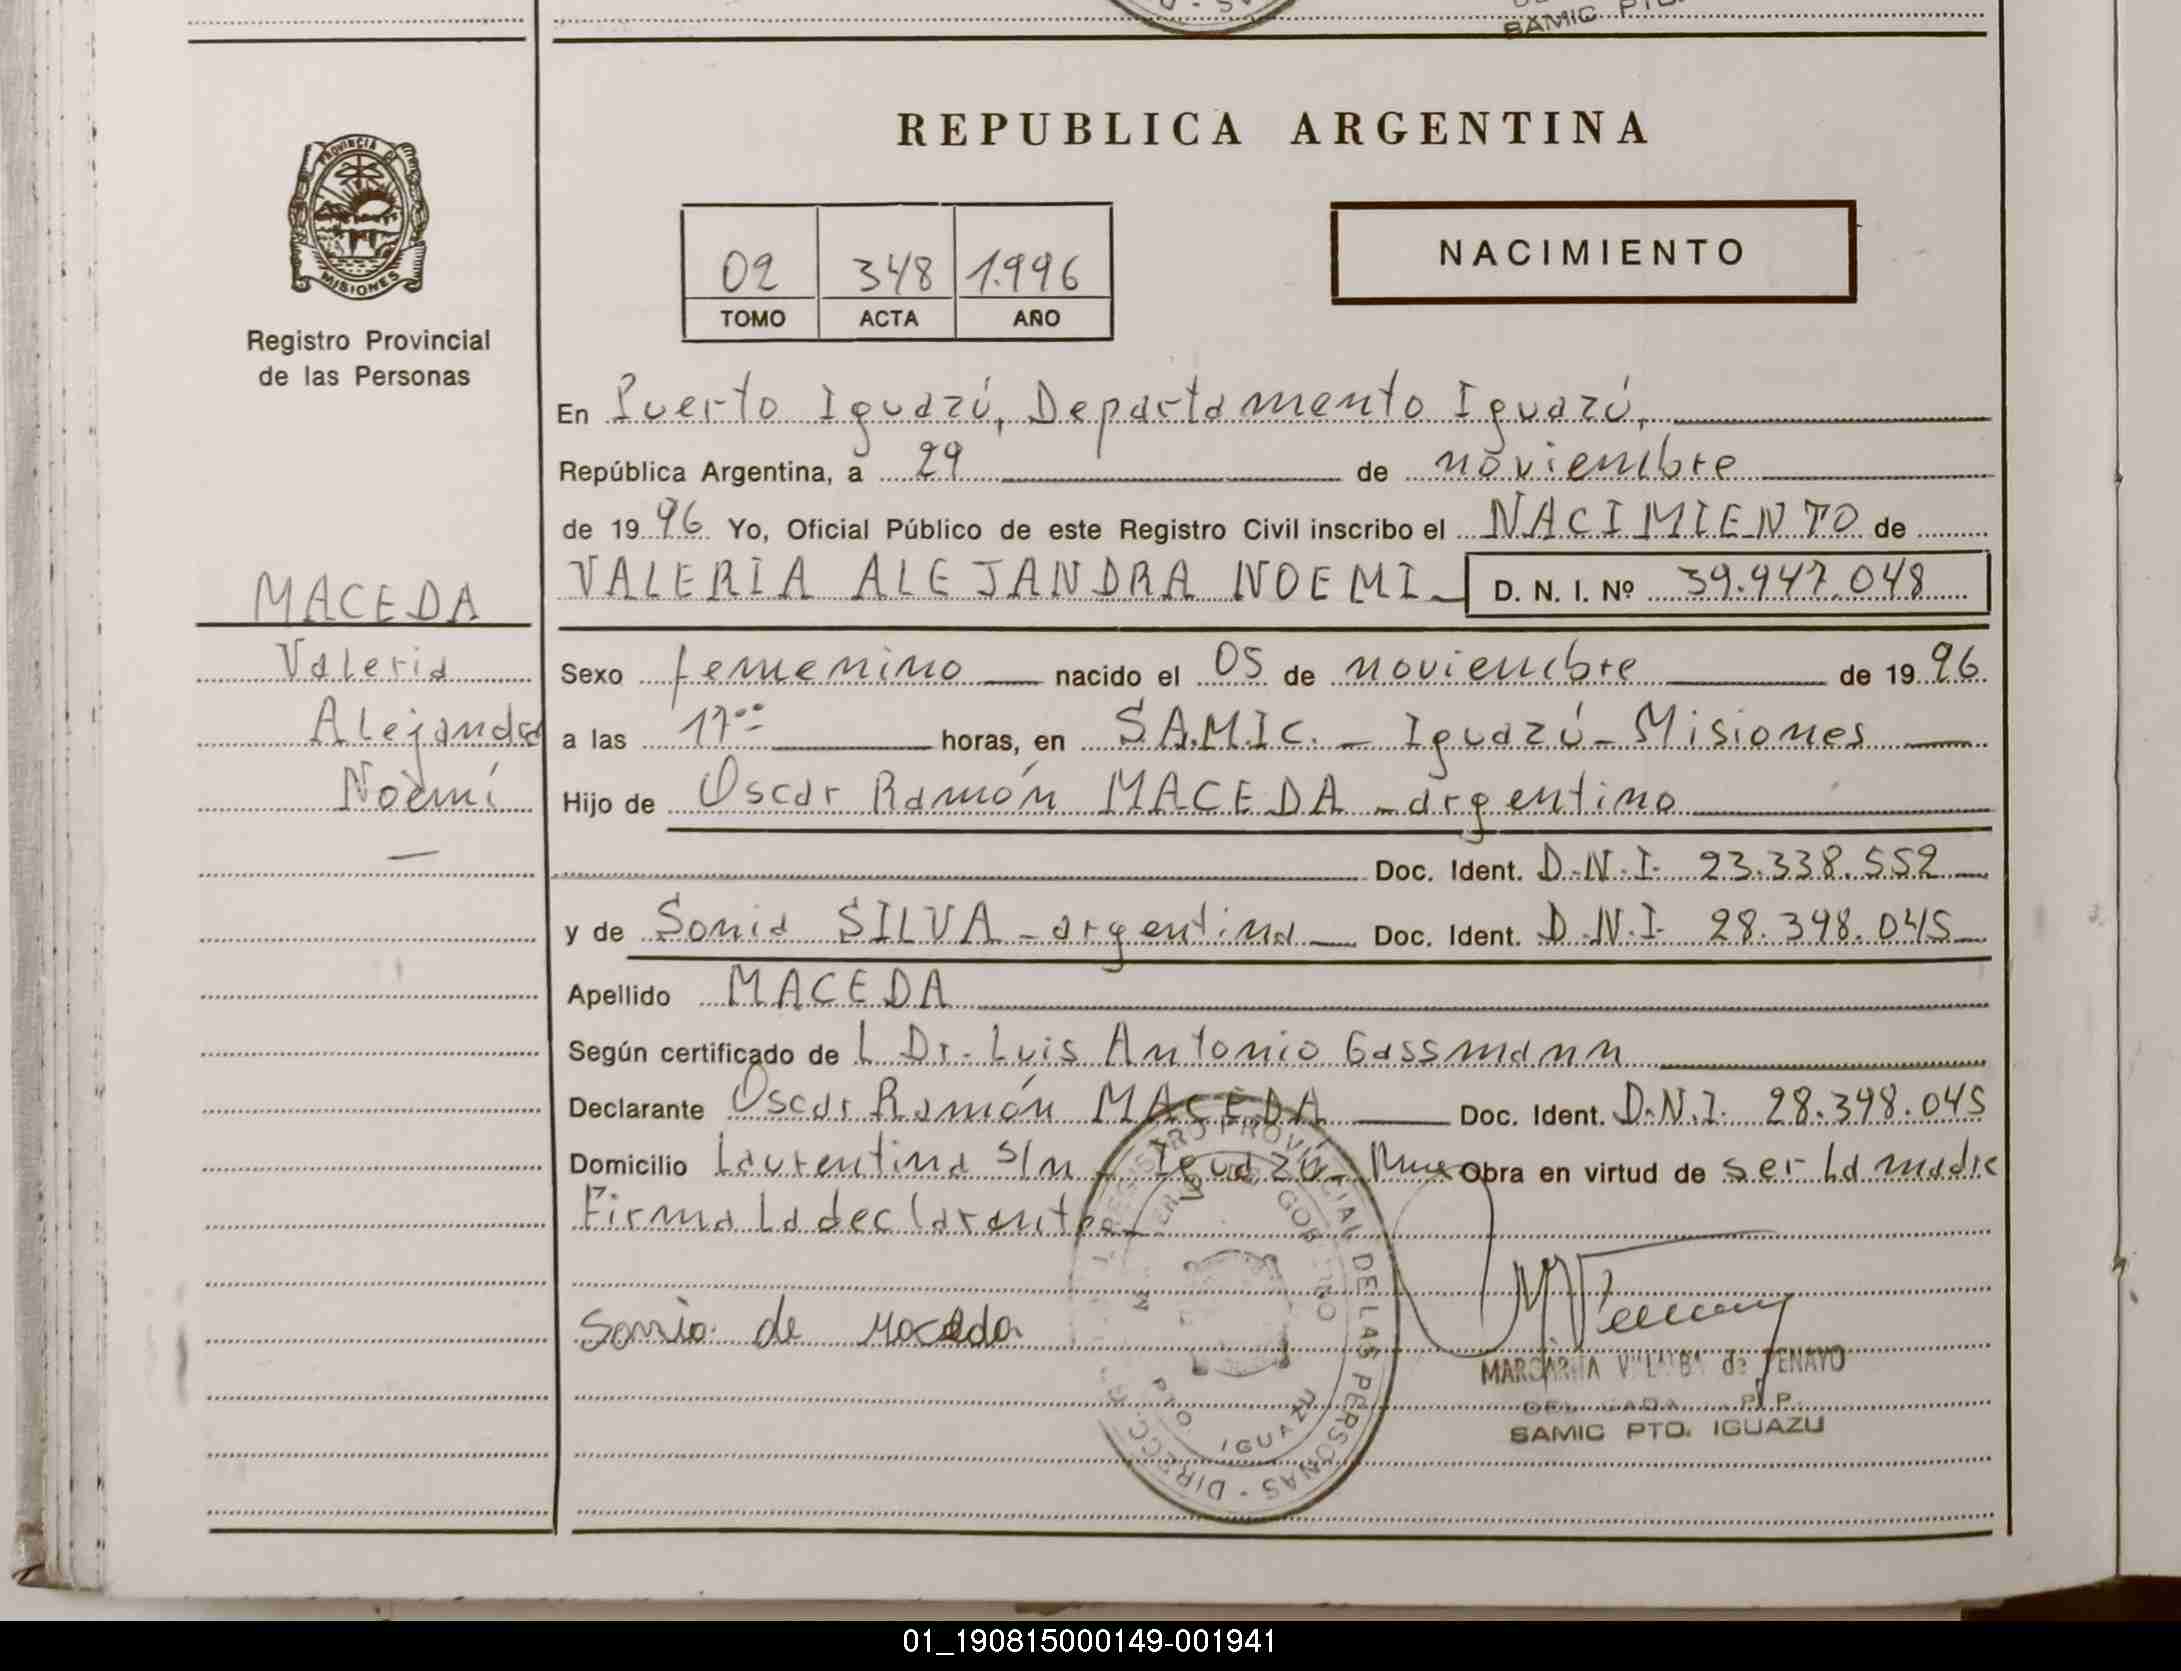 SAMIC PTO.
REPUBLICA ARGENTINA
PROVINCIA
MISIONES
Registro Provincial
de las Personas
02 348 1.996
TOMO ACTA AÑO
NACIMIENTO
En Puerto Iguazú, Departamento Iguazú,
República Argentina, a 29 de noviembre
de 1996 Yo, Oficial Público de este Registro Civil inscribo el NACIMIENTO de
VALERIA ALEJANDRA NOEMI D. N. I. Nº 39.947.048
MACEDA
Valeria
Alejandra
Noemí
Sexo femenino nacido el 05 de noviembre de 1996
a las 17 horas, en S.A.M.I.C. - Iguazú - Misiones
Hijo de Oscar Ramón MACEDA - argentino
Doc. Ident. D.N.I. 23.338.552
y de Sonia SILVA - argentina Doc. Ident. D.N.I. 28.398.045
Apellido MACEDA
Según certificado de L Dr. Luis Antonio Gassmann
Declarante Oscar Ramón MACEDA Doc. Ident. D.N.I. 28.398.045
Domicilio Laurentina s/n - Iguazú - Mnes Obra en virtud de ser la madre
Firma la declarante
Sonia de Maceda
REGISTRO PROVINCIAL DE LAS PERSONAS
PTO. IGUAZU
MARGARITA VILLALBA de PENAYO
SAMIC PTO. IGUAZU
01_190815000149-001941